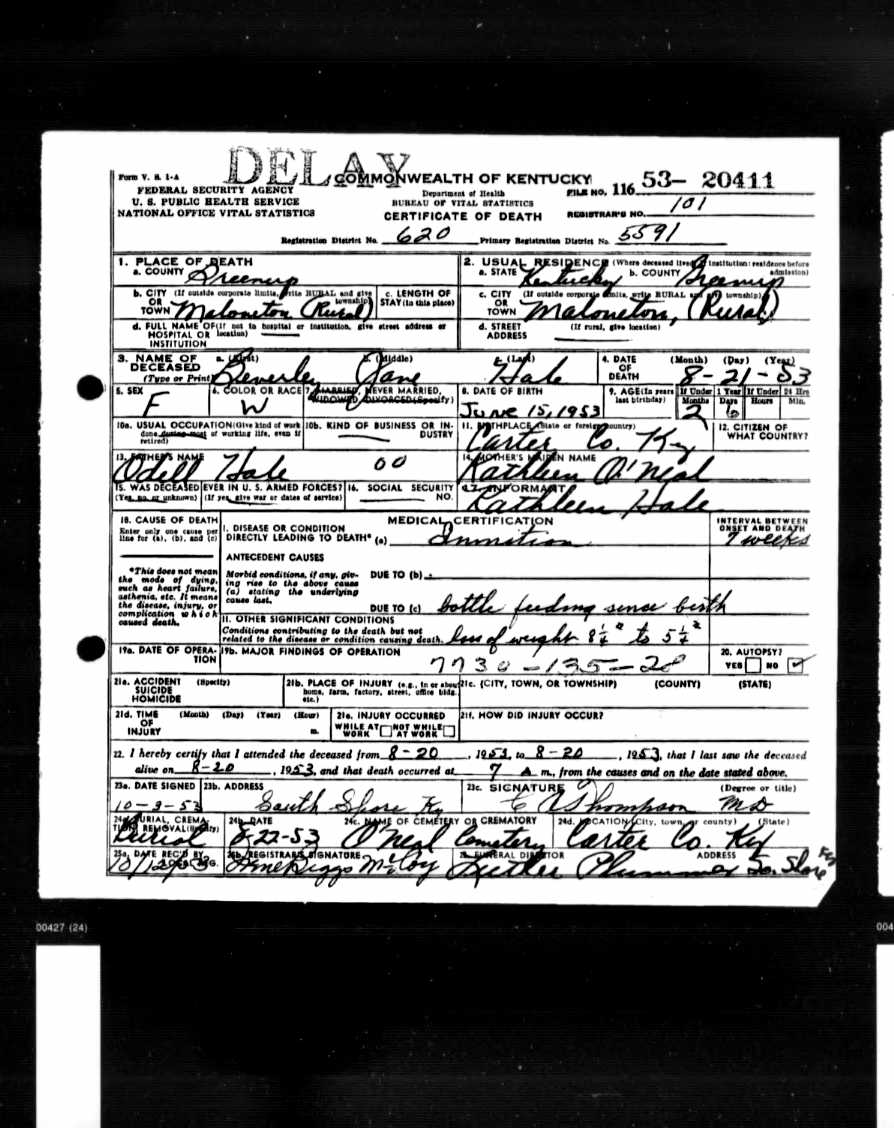 DELAY
Form V. S. 1-A
COMMONWEALTH OF KENTUCKY
FEDERAL SECURITY AGENCY
U. S. PUBLIC HEALTH SERVICE
NATIONAL OFFICE VITAL STATISTICS
Department of Health
BUREAU OF VITAL STATISTICS
CERTIFICATE OF DEATH
FILE NO. 116 53- 20411
REGISTRAR'S NO. 101
Registration District No. 620 Primary Registration District No. 5591
1. PLACE OF DEATH
a. COUNTY Greenup
2. USUAL RESIDENCE (Where deceased lived. If institution: residence before admission)
a. STATE Kentucky b. COUNTY Greenup
b. CITY (If outside corporate limits, write RURAL and give township)
OR TOWN Maloneton (Rural)
c. LENGTH OF STAY (in this place)
c. CITY (If outside corporate limits, write RURAL and give township)
OR TOWN Maloneton, (Rural)
d. FULL NAME OF (If not in hospital or institution, give street address or location)
HOSPITAL OR INSTITUTION
d. STREET ADDRESS (If rural, give location)
3. NAME OF DECEASED (Type or Print)
a. (First) Beverley b. (Middle) Jane c. (Last) Hale
4. DATE OF DEATH (Month) (Day) (Year) 8-21-53
5. SEX F
6. COLOR OR RACE W
7. MARRIED, NEVER MARRIED, WIDOWED, DIVORCED (Specify)
8. DATE OF BIRTH June 15, 1953
9. AGE (In years last birthday) If Under 1 Year Months 2 Days 6 If Under 24 Hrs Hours Min.
10a. USUAL OCCUPATION (Give kind of work done during most of working life, even if retired)
10b. KIND OF BUSINESS OR INDUSTRY
11. BIRTHPLACE (State or foreign country) Carter Co. Ky
12. CITIZEN OF WHAT COUNTRY?
13. FATHER'S NAME Odell Hale 00
14. MOTHER'S MAIDEN NAME Kathleen O'Neal
15. WAS DECEASED EVER IN U. S. ARMED FORCES?
(Yes, no, or unknown) (If yes, give war or dates of service)
16. SOCIAL SECURITY NO.
17. INFORMANT Kathleen Hale
18. CAUSE OF DEATH
Enter only one cause per line for (a), (b), and (c)
MEDICAL CERTIFICATION
INTERVAL BETWEEN ONSET AND DEATH
I. DISEASE OR CONDITION
DIRECTLY LEADING TO DEATH* (a) Inanition 7 weeks
ANTECEDENT CAUSES
*This does not mean the mode of dying, such as heart failure, asthenia, etc. It means the disease, injury, or complication which caused death.
Morbid conditions, if any, giving rise to the above cause (a) stating the underlying cause last.
DUE TO (b)
DUE TO (c) bottle feeding since birth
II. OTHER SIGNIFICANT CONDITIONS
Conditions contributing to the death but not related to the disease or condition causing death. loss of weight 8 1/4 # to 5 1/4 #
19a. DATE OF OPERATION
19b. MAJOR FINDINGS OF OPERATION
7730-135-28
20. AUTOPSY?
YES NO ✓
21a. ACCIDENT SUICIDE HOMICIDE (Specify)
21b. PLACE OF INJURY (e.g., in or about home, farm, factory, street, office bldg., etc.)
21c. (CITY, TOWN, OR TOWNSHIP) (COUNTY) (STATE)
21d. TIME OF INJURY (Month) (Day) (Year) (Hour) m.
21e. INJURY OCCURRED
WHILE AT WORK NOT WHILE AT WORK
21f. HOW DID INJURY OCCUR?
22. I hereby certify that I attended the deceased from 8-20, 1953, to 8-20, 1953, that I last saw the deceased
alive on 8-20, 1953, and that death occurred at 7 A m., from the causes and on the date stated above.
23a. DATE SIGNED 10-3-53
23b. ADDRESS South Shore Ky
23c. SIGNATURE C Thompson (Degree or title) MD
24a. BURIAL, CREMATION, REMOVAL (Specify) Burial
24b. DATE 8-22-53
24c. NAME OF CEMETERY OR CREMATORY O'Neal Cemetery
24d. LOCATION (City, town, or county) (State) Carter Co. Ky
25a. DATE REC'D BY REG. 10/12/53
25b. REGISTRAR'S SIGNATURE Riggs McCoy
FUNERAL DIRECTOR Luther Plummer ADDRESS So. Shore Ky
00427 (24)
004